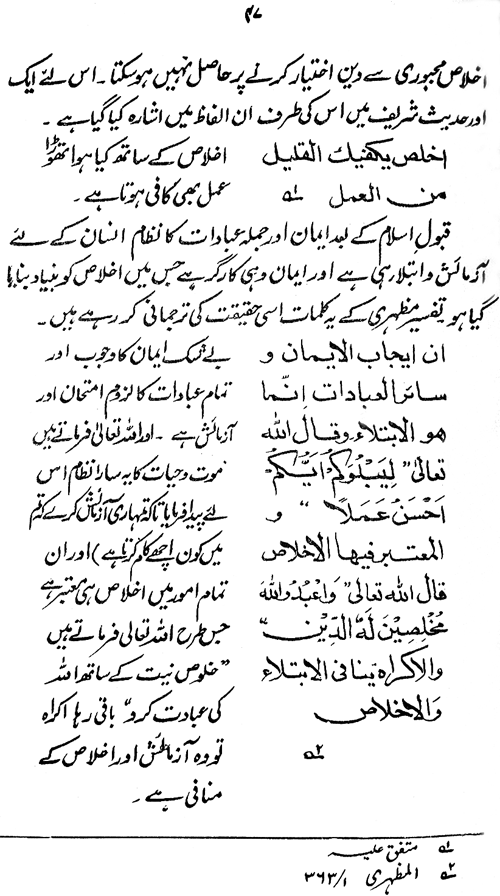 ۴۷
اخلاص مجبوری سے دین اختیار کرنے پر حاصل نہیں ہوسکتا۔ اس لئے ایک
اور حدیث شریف میں اس کی طرف ان الفاظ میں اشارہ کیا گیا ہے۔
اخلص یکفیک القلیل
من العمل ؎۱
اخلاص کے ساتھ کیا ہوا تھوڑا
عمل بھی کافی ہوتا ہے۔
قبول اسلام کے بعد ایمان اور جملہ عبادات کا نظام انسان کے لئے
آزمائش و ابتلا ہی ہے اور ایمان وہی کارگر ہے جس میں اخلاص کو بنیاد بنایا
گیا ہو تفسیر مظہری کے یہ کلمات اسی حقیقت کی ترجمانی کر رہے ہیں۔
ان ایجاب الایمان و
سائر العبادات اِنّما
ھو الابتلاء وقال اللہ
تعالیٰ "لِیَبْلُوَکُمْ اَیُّکُمْ
اَحْسَنُ عَمَلاً" و
المعتبر فیھا الاخلاص
قال اللہ تعالیٰ "وَاعْبُدُوااللہَ
مُخْلِصِیْنَ لَہُ الدِّیْنَ"
والاکراہ ینافی الابتلاء
والاخلاص
؎۲
بے شک ایمان کا وجوب اور
تمام عبادات کا لزوم امتحان اور
آزمائش ہے۔ اور اللہ تعالیٰ فرماتے ہیں
موت و حیات کا یہ سارا نظام اس
لئے پیدا فرمایا تاکہ تمہاری آزمائش کرے کہ تم
میں کون اچھے کام کرتا ہے) اور ان
تمام امور میں اخلاص ہی معتبر ہے
جس طرح اللہ تعالیٰ فرماتے ہیں
"خلوص نیت کے ساتھ اللہ
کی عبادت کرو" باقی رہا اکراہ
تو وہ آزمائش اور اخلاص کے
منافی ہے۔
؎۱ متفق علیہ
؎۲ المظہری ۳۶۳/۱